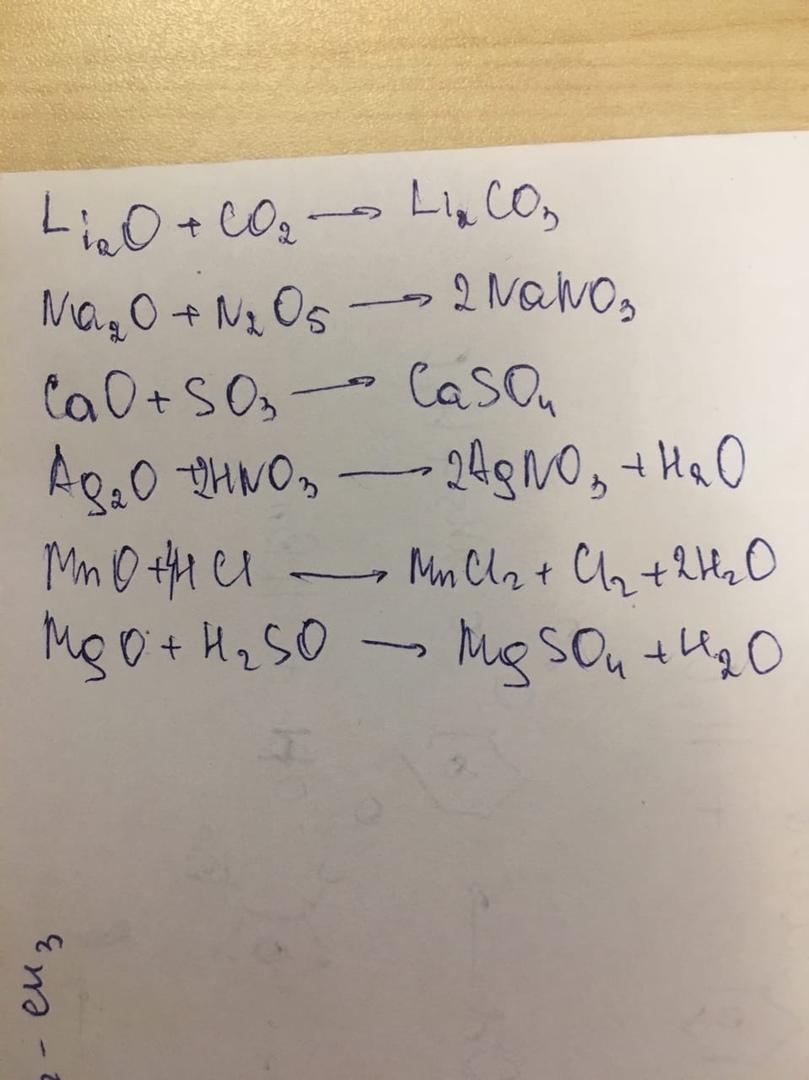 Li₂O + CO₂ → Li₂CO₃
Na₂O + N₂O₅ → 2NaNO₃
CaO + SO₃ → CaSO₄
Ag₂O + 2HNO₃ → 2AgNO₃ + H₂O
MnO + 4HCl → MnCl₂ + Cl₂ + 2H₂O
MgO + H₂SO → MgSO₄ + H₂O
- CH₃